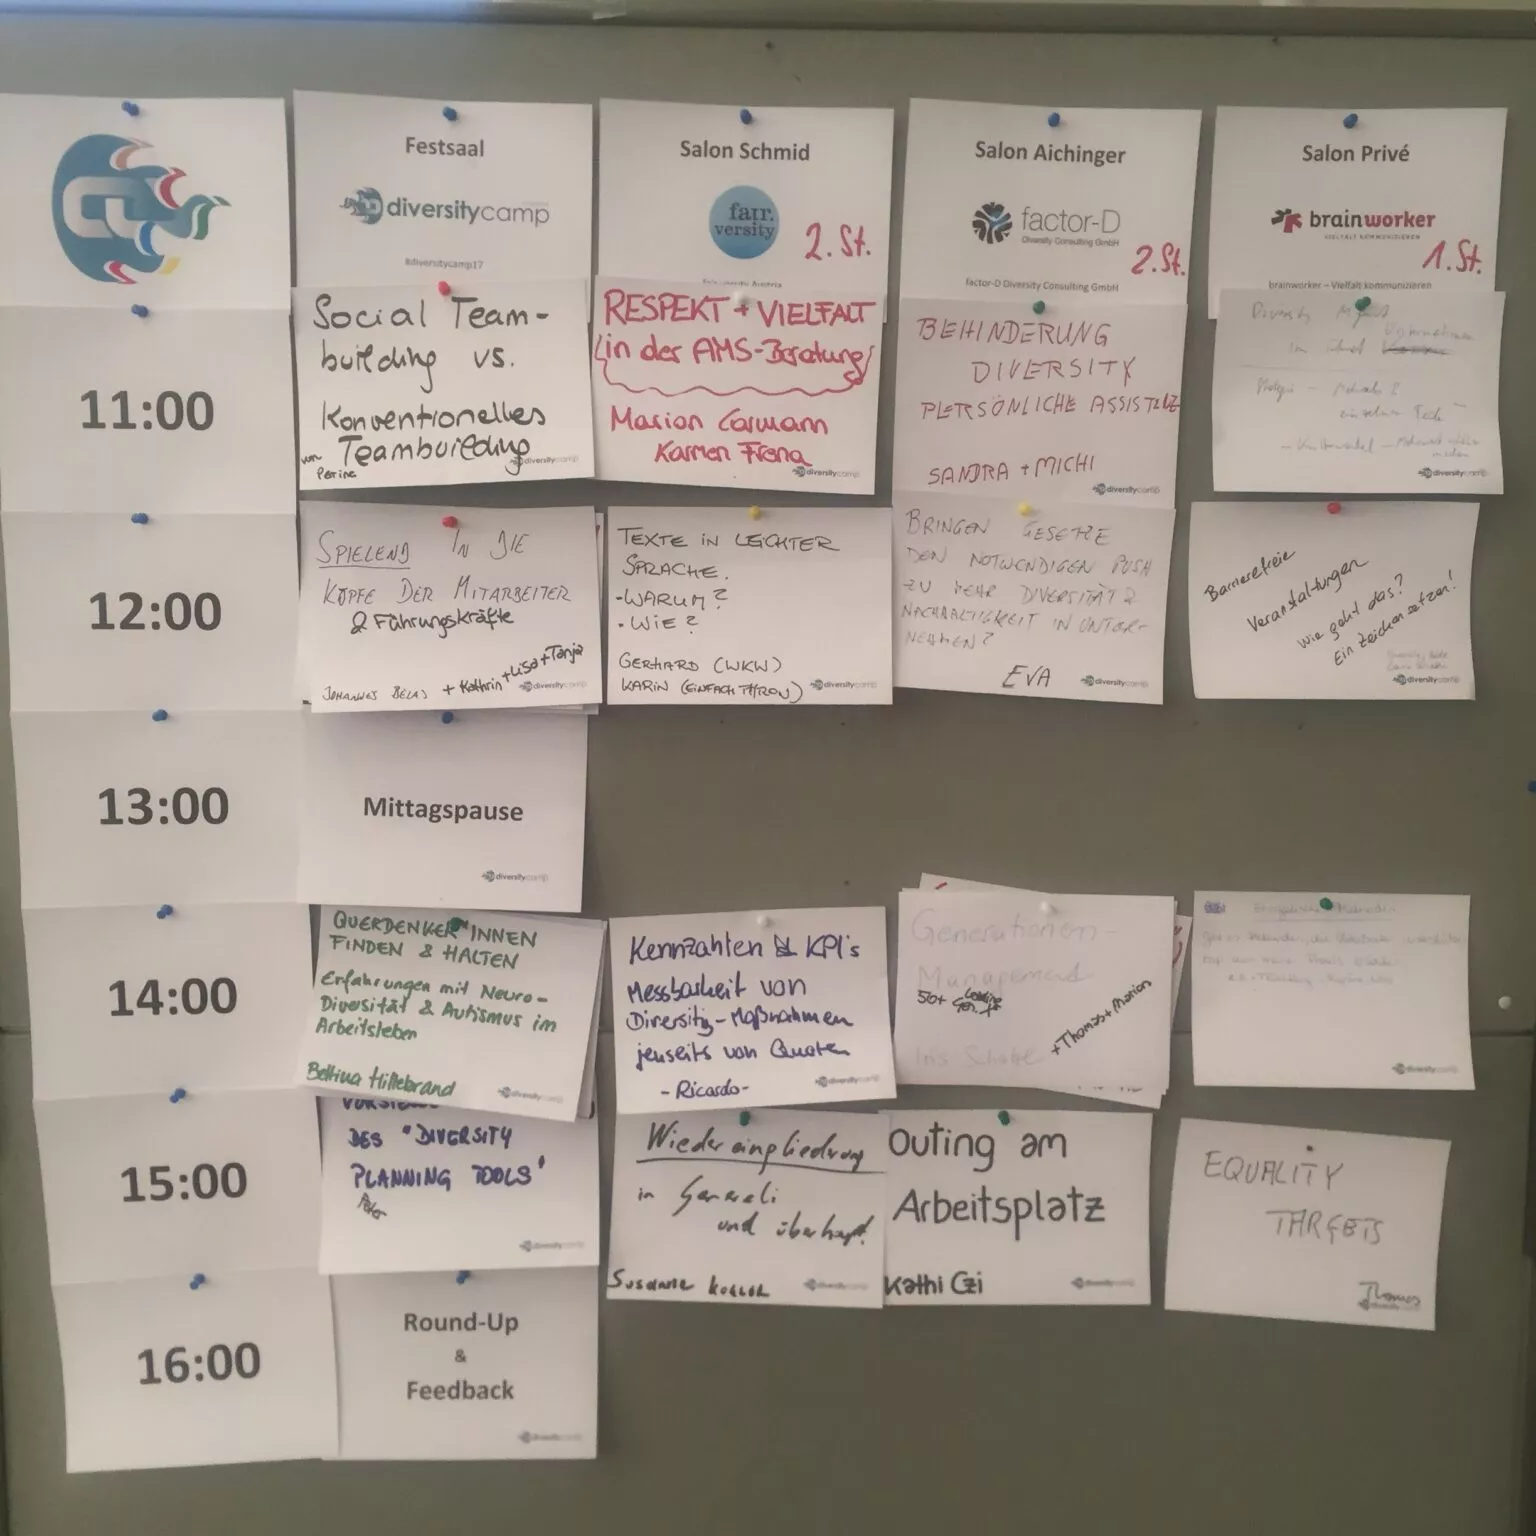 Festsaal
diversitycamp
#diversitycamp17
Salon Schmid
fair.
versity
2. St.
Salon Aichinger
factor-D
Diversity Consulting GmbH
2. St.
factor-D Diversity Consulting GmbH
Salon Privé
brainworker
VIELFALT KOMMUNIZIEREN
1. St.
brainworker – Vielfalt kommunizieren
11:00
Social Team-
building vs.
Konventionelles
Teambuilding
von
Perine
diversitycamp
RESPEKT + VIELFALT
in der AMS-Beratung
Marion Carmann
Karmen Frena
diversitycamp
BEHINDERUNG
DIVERSITY
PERSÖNLICHE ASSISTENZ
SANDRA + MICHI
diversitycamp
Diversity
diversitycamp
12:00
SPIELEND IN DIE
KÖPFE DER MITARBEITER
& Führungskräfte
JOHANNES BELAS + Kathrin + Lisa + Tanja
diversitycamp
TEXTE IN LEICHTER
SPRACHE.
- WARUM?
- WIE?
GERHARD (WKW)
KARIN (EINFACH THRON)
diversitycamp
BRINGEN GESETZE
DEN NOTWENDIGEN PUSH
ZU MEHR DIVERSITÄT &
NACHHALTIGKEIT IN UNTER-
NEHMEN?
EVA
diversitycamp
Barrierefreie
Veranstaltungen
Wie geht das?
Ein Zeichen setzen!
diversitycamp
13:00
Mittagspause
diversitycamp
14:00
QUERDENKER*INNEN
FINDEN & HALTEN
Erfahrungen mit Neuro-
Diversität & Autismus im
Arbeitsleben
Bettina Hillebrand
diversitycamp
Kennzahlen & KPI's
Messbarkeit von
Diversity-Maßnahmen
jenseits von Quoten
- Ricardo -
diversitycamp
Generationen-
Management
50+
+ Thomas + Marion
Iris
diversitycamp
15:00
DES "DIVERSITY
PLANNING TOOLS"
Peter
diversitycamp
Wiedereingliedrung
in Generali
und überhaupt.
Susanne
diversitycamp
Outing am
Arbeitsplatz
Kathi Czi
diversitycamp
EQUALITY
TARGETS
Thomas
diversitycamp
16:00
Round-Up
&
Feedback
diversitycamp